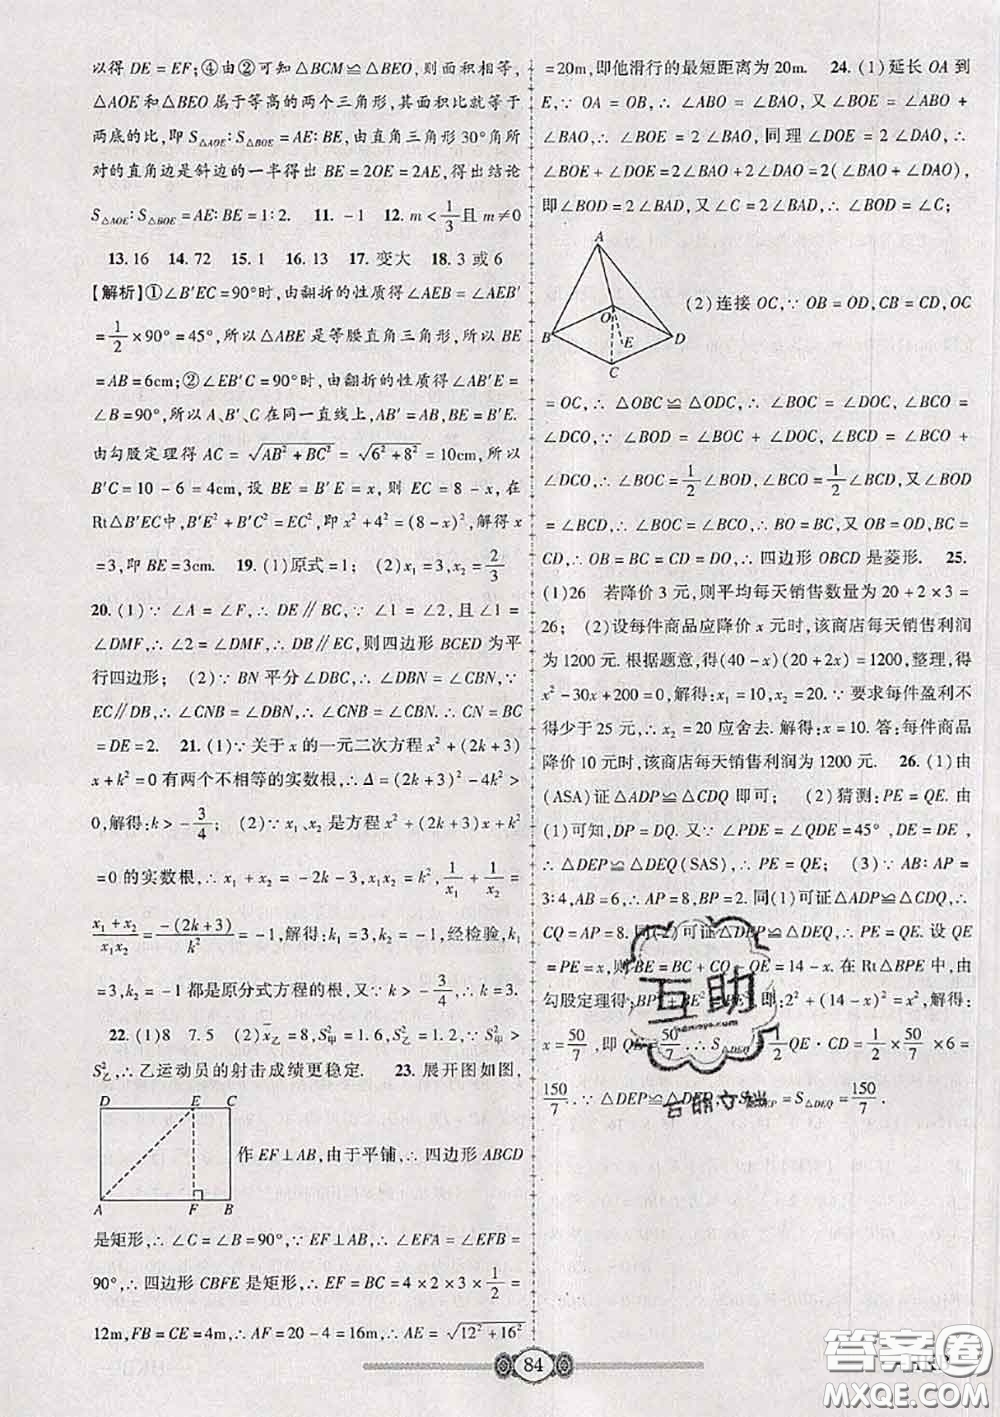 以得 DE = EF;④由②可知△BCM≌△BEO,则面积相等,
△AOE和△BEO属于等高的两个三角形,其面积比就等于
两底的比,即 S△AOE∶S△BOE = AE∶BE,由直角三角形30°角所
对的直角边是斜边的一半得出 BE = 2OE = 2AE,得出结论
S△AOE∶S△BOE = AE∶BE = 1∶2. 11. -1 12. m < 1/3 且 m ≠ 0
13. 16 14. 72 15. 1 16. 13 17. 变大 18. 3 或 6
【解析】①∠B′EC = 90°时,由翻折的性质得∠AEB = ∠AEB′
= 1/2 × 90° = 45°,所以△ABE 是等腰直角三角形,所以 BE
= AB = 6cm;②∠EB′C = 90°时,由翻折的性质得∠AB′E =
∠B = 90°,所以A、B′、C 在同一直线上,AB′ = AB,BE = B′E.
由勾股定理得 AC = √(AB² + BC²) = √(6² + 8²) = 10cm,所以
B′C = 10 - 6 = 4cm,设 BE = B′E = x,则 EC = 8 - x,在
Rt△B′EC中,B′E² + B′C² = EC²,即 x² + 4² = (8 - x)²,解得 x
= 3,即 BE = 3cm. 19. (1)原式 = 1; (2)x₁ = 3,x₂ = 2/3
20. (1)∵ ∠A = ∠F,∴ DE∥BC,∵ ∠1 = ∠2,且 ∠1 =
∠DMF,∴ ∠2 = ∠DMF,∴ DB∥EC,则四边形 BCED 为平
行四边形; (2)∵ BN 平分∠DBC,∴ ∠DBN = ∠CBN,∵
EC∥DB,∴ ∠CNB = ∠DBN,∴ ∠CNB = ∠CBN.∴ CN = BC
= DE = 2. 21. (1)∵ 关于 x 的一元二次方程 x² + (2k + 3)
x + k² = 0 有两个不相等的实数根,∴ Δ = (2k + 3)² - 4k² >
0,解得:k > -3/4; (2)∵ x₁、x₂ 是方程 x² + (2k + 3)x + k²
= 0 的实数根,∴ x₁ + x₂ = -2k - 3,x₁x₂ = k²,∴ 1/x₁ + 1/x₂ =
(x₁ + x₂)/(x₁x₂) = -(2k + 3)/k² = -1,解得:k₁ = 3,k₂ = -1,经检验,k₁
= 3,k₂ = -1 都是原分式方程的根,又∵ k > -3/4,∴ k = 3.
22. (1)8 7.5 (2)x̄乙 = 8,S²甲 = 1.6,S²乙 = 1.2,∵ S²甲 >
S²乙,∴ 乙运动员的射击成绩更稳定. 23. 展开图如图,
D E C
作 EF⊥AB,由于平铺,∴ 四边形 ABCD
A F B
是矩形,∴ ∠C = ∠B = 90°,∵ EF⊥AB,∴ ∠EFA = ∠EFB =
90°,∴ 四边形 CBFE 是矩形,∴ EF = BC = 4 × 2 × 3 × 1/2 =
12m,FB = CE = 4m,∴ AF = 20 - 4 = 16m,∴ AE = √(12² + 16²)
= 20m,即他滑行的最短距离为 20m. 24. (1)延长 OA 到
E,∵ OA = OB,∴ ∠ABO = ∠BAO,又 ∠BOE = ∠ABO +
∠BAO,∴ ∠BOE = 2∠BAO,同理 ∠DOE = 2∠DAO,∴
∠BOE + ∠DOE = 2∠BAO + 2∠DAO = 2(∠BAO + ∠DAO),
即∠BOD = 2∠BAD,又∠C = 2∠BAD,∴ ∠BOD = ∠C;
A
(2)连接 OC,∵ OB = OD,CB = CD,OC
O
B E D
C
= OC,∴ △OBC≌△ODC,∴ ∠BOC = ∠DOC,∠BCO =
∠DCO,∵ ∠BOD = ∠BOC + ∠DOC,∠BCD = ∠BCO +
∠DCO,∴ ∠BOC = 1/2∠BOD,∠BCO = 1/2∠BCD,又∠BOD
= ∠BCD,∴ ∠BOC = ∠BCO,∴ BO = BC,又 OB = OD,BC =
CD,∴ OB = BC = CD = DO,∴ 四边形 OBCD 是菱形. 25.
(1)26 若降价 3 元,则平均每天销售数量为 20 + 2 × 3 =
26; (2)设每件商品应降价 x 元时,该商店每天销售利润
为 1200 元. 根据题意,得(40 - x)(20 + 2x) = 1200,整理,得
x² - 30x + 200 = 0,解得:x₁ = 10,x₂ = 20. ∵ 要求每件盈利不
得少于 25 元,∴ x₂ = 20 应舍去. 解得:x = 10. 答:每件商品
降价 10 元时,该商店每天销售利润为 1200 元. 26. (1)由
(ASA)证△ADP≌△CDQ 即可; (2)猜测:PE = QE. 由
(1)可知,DP = DQ. 又∵ ∠PDE = ∠QDE = 45°,DE = DE,
∴ △DEP≌△DEQ(SAS),∴ PE = QE; (3)∵ AB∶AP =
3∶4,AB = 6,∴ AP = 8,BP = 2. 同(1)可证△ADP≌△CDQ,∴
CQ = AP = 8. 同(2)可证△DEP≌△DEQ,∴ PE = QE. 设 QE
= PE = x,则 BE = BC + CQ - QE = 14 - x. 在 Rt△BPE 中,由
勾股定理得:BP² + BE² = PE²,即:2² + (14 - x)² = x²,解得:
x = 50/7,即 QE = 50/7.∴ S△DEQ = 1/2 QE · CD = 1/2 × 50/7 × 6 =
150/7. ∵ △DEP≌△DEQ,∴ S△DEP = S△DEQ = 150/7.
互助
84
答案圈
MXQE.COM